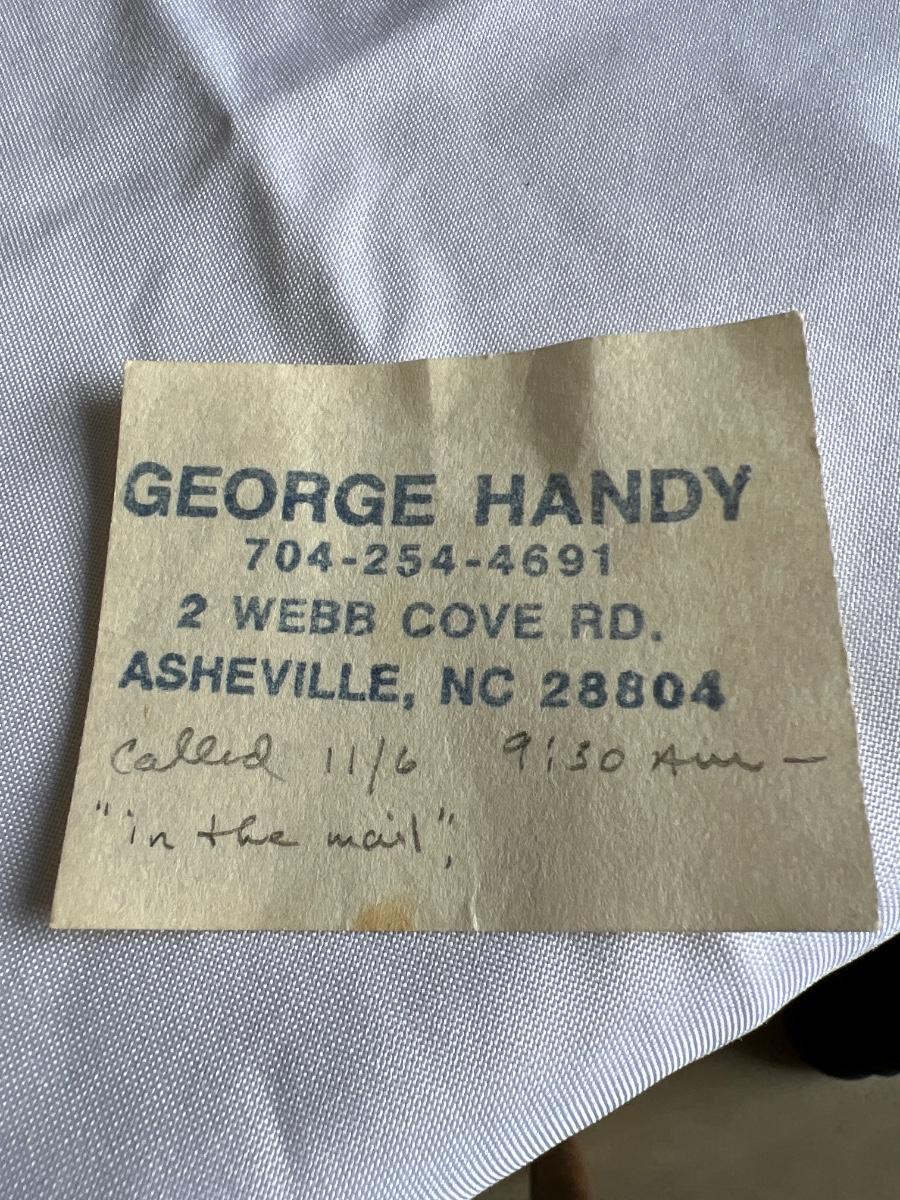 GEORGE HANDY
704-254-4691
2 WEBB COVE RD.
ASHEVILLE, NC 28804
Called 11/6 9:30 AM —
"in the mail",